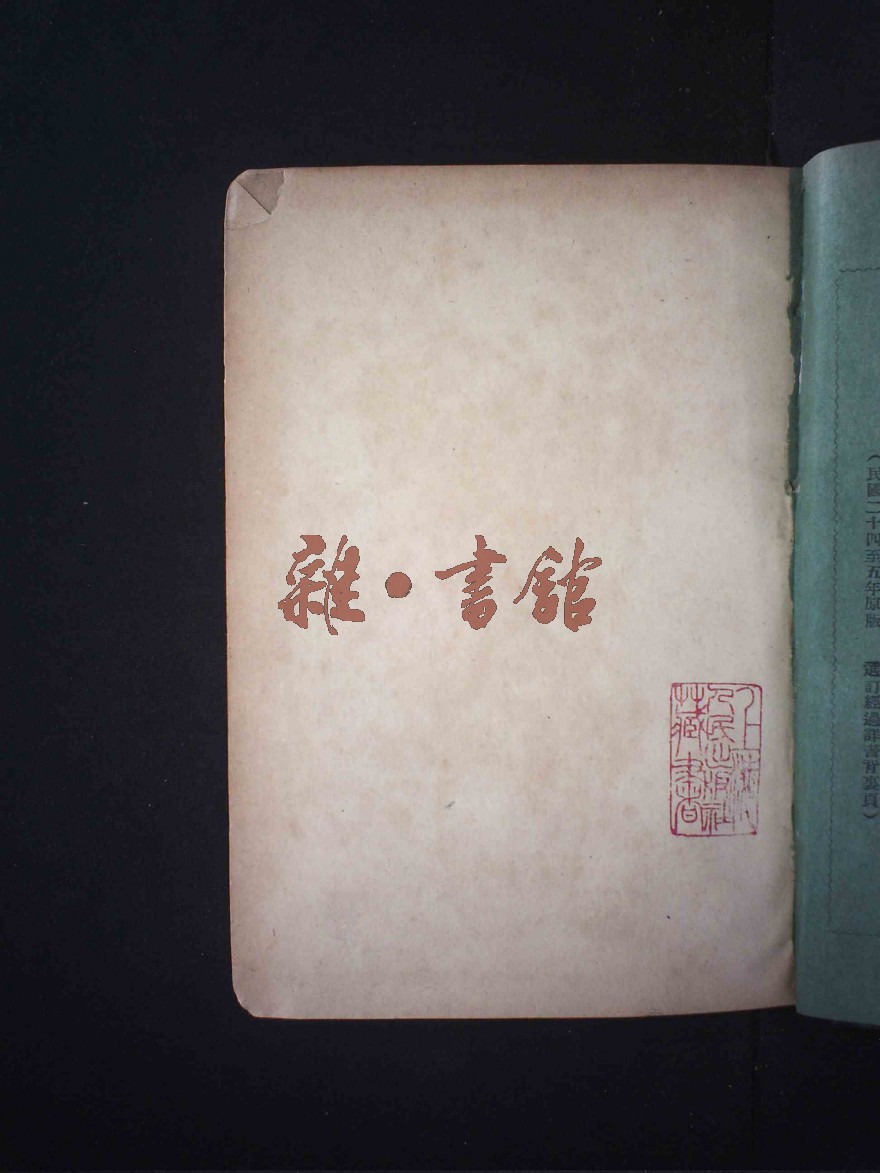 （民國二十四至五年原版　選訂經過詳書背裏頁）
雜·書館
上海人民出版社藏書